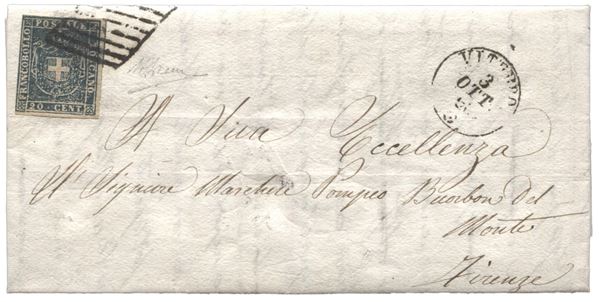 FRANCOBOLLO
POSTALE
TOSCANO
20 CENT
VITERBO
3
OTT.
A Sua Eccellenza
Il Signiore Marchese Pompeo Bourbon Del
Monte
Firenze